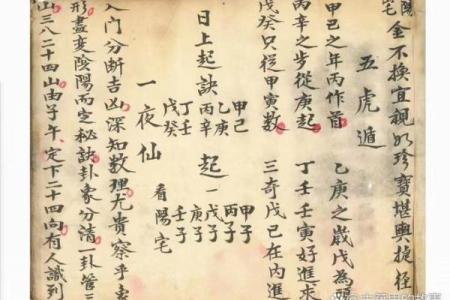 陽宅
金不換宜視如珍寶堪輿捷徑
五虎遁
甲己之年丙作首 乙庚之歲戊為頭
丙辛之步從庚起 丁壬壬寅好進來
戊癸只從甲寅數 三奇戊己在內進
日上起訣 甲己 乙庚 丙辛 丁壬 戊癸 起 甲子 丙子 一戊子 庚子 壬子
一夜仙 看陽宅
入门分断吉凶深知数理尤贵察乎
形盡变陰陽而定秘訣卦象分清一卦管三
山三八二十四山由子午定下二十四向有人識到